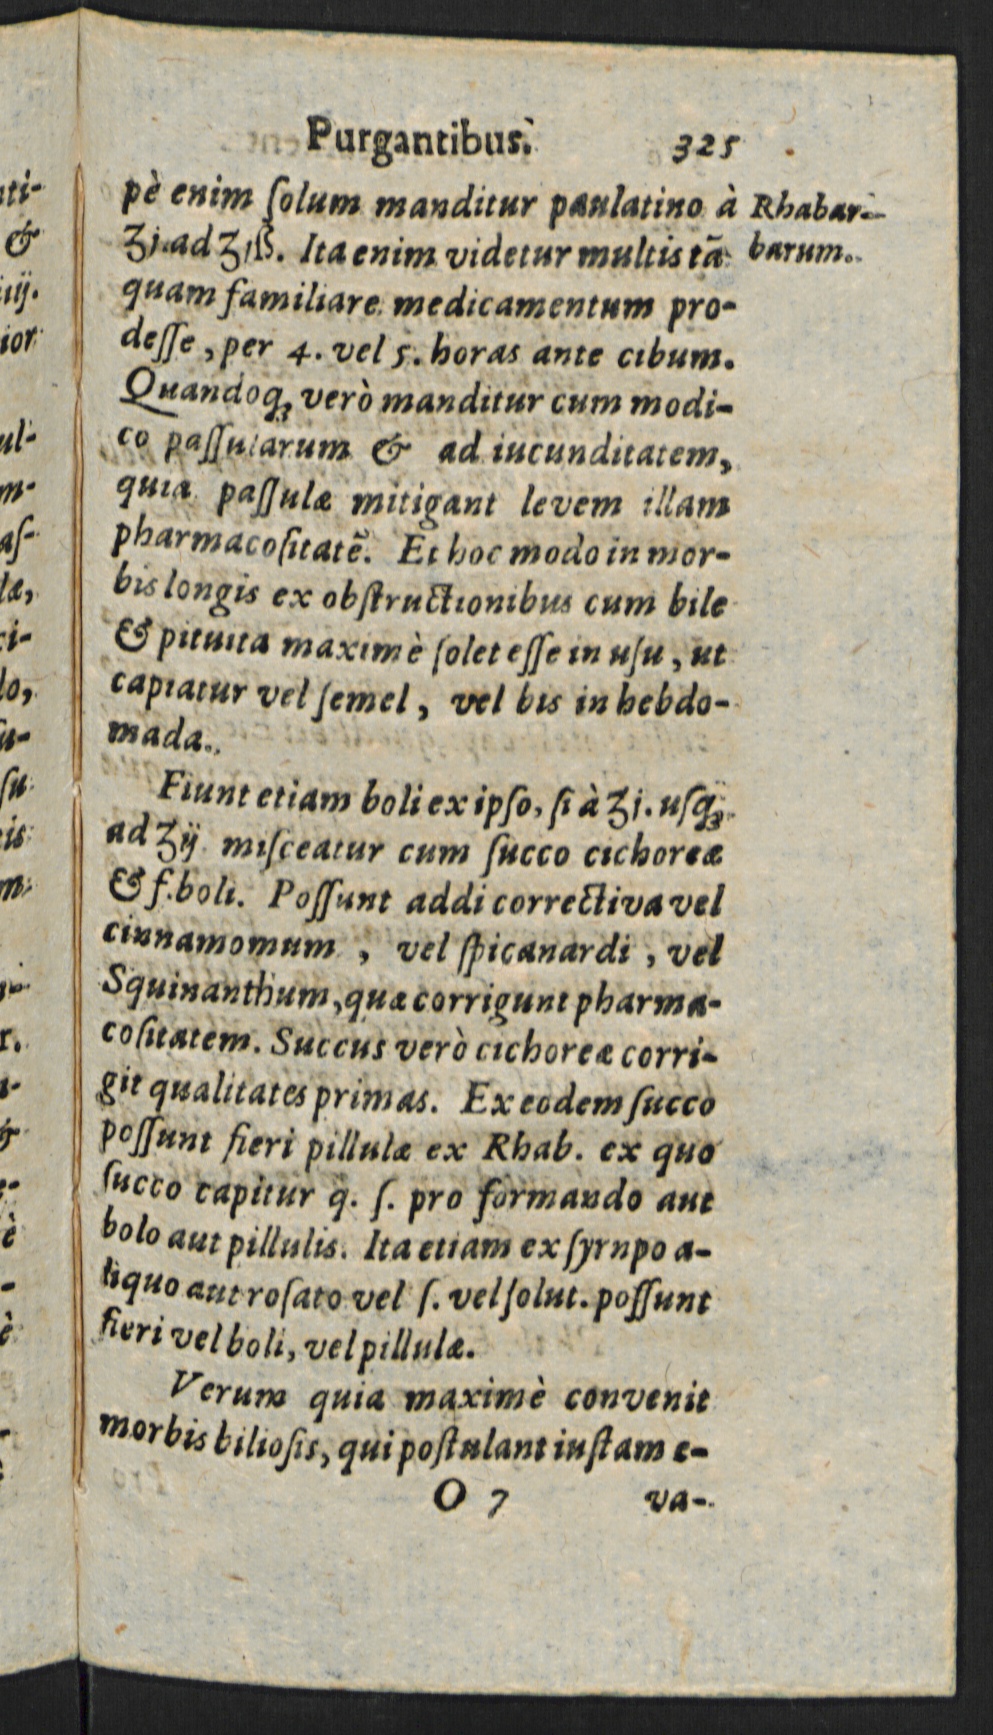 Purgantibus. 325
pè enim ſolum manditur paulatino à
Rhabar-
barum.
ʒj. ad ʒjß. Ita enim videtur multis tā
quam familiare medicamentum pro-
deſſe, per 4. vel 5. horas ante cibum.
Quandoq; verò manditur cum modi-
co paſſularum & ad iucunditatem,
quia paſſulæ mitigant levem illam
pharmacoſitatē. Et hoc modo in mor-
bis longis ex obſtructionibus cum bile
& pituita maximè ſolet eſſe in uſu, ut
capiatur vel ſemel, vel bis in hebdo-
mada.
Fiunt etiam boli ex ipſo, ſi à ʒj. uſq;
ad ʒij miſceatur cum ſucco cichoreæ
& f. boli. Poſſunt addi correctiva vel
cinnamomum, vel ſpicanardi, vel
Squinanthum, quæ corrigunt pharma-
coſitatem. Succus verò cichoreæ corri-
git qualitates primas. Ex eodem ſucco
poſſunt fieri pillulæ ex Rhab. ex quo
ſucco capitur q. ſ. pro formando aut
bolo aut pillulis. Ita etiam ex ſyrnpo a-
liquo aut roſato vel ſ. vel ſolut. poſſunt
fieri vel boli, vel pillulæ.
Verum quia maximè convenit
morbis bilioſis, qui poſtulant iuſtam e-
O 7 va-